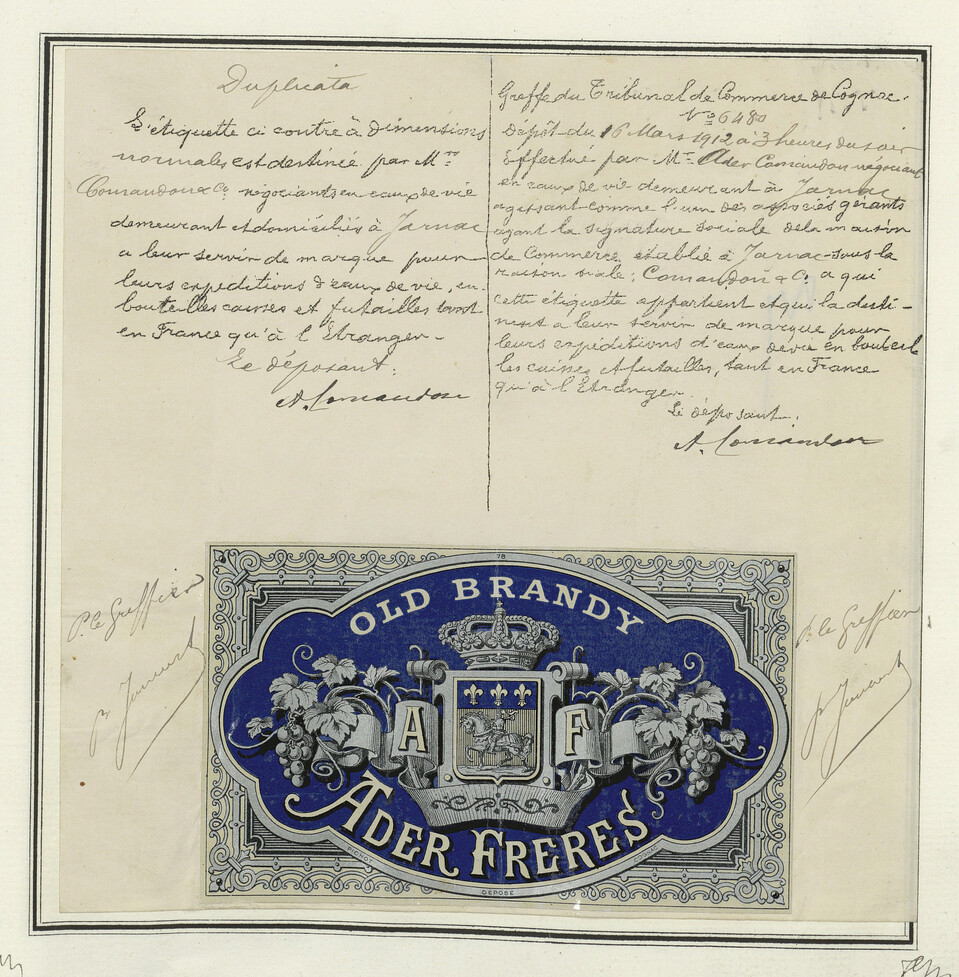 Duplicata
L'étiquette ci contre à dimensions
normales est destinée par M.rs
Comandon & Co. négociants en eaux de vie
demeurant et domiciliés à Jarnac
a leur servir de marque pour
leurs expéditions d'eaux de vie, en
bouteilles caisses et futailles tant
en France qu'à l'Etranger.
Le déposant:
A. Comandon
Greffe du Tribunal de Commerce de Cognac.
No 6480
Dépôt du 16 Mars 1912 à 3 heures du soir
Effectué par Mr Ader Comandon négociant
en eaux de vie demeurant à Jarnac
agissant comme l'un des associés gérants
ayant la signature sociale de la maison
de Commerce établie à Jarnac sous la
raison siale: Comandon & Co. a qui
cette étiquette appartient et qui la desti-
nent a leur servir de marque pour
leurs expéditions d'eaux de vie en bouteil
les caisses et futailles, tant en France
qu'à l'Etranger.
Le déposant:
A. Comandon
P. le Greffier
P. le Greffier
78
OLD BRANDY
A F
ADER FRERES
DEPOSÉ